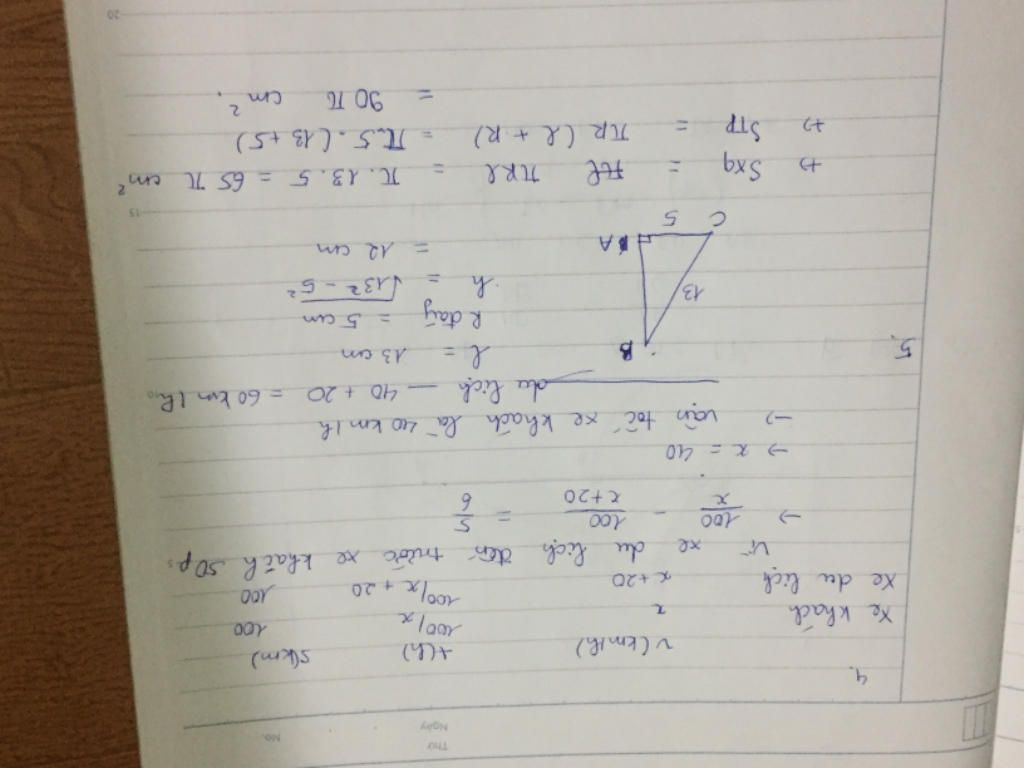 Thứ
Ngày
No.
4.
v(km/h) t(h) s(km)
Xe khách x 100/x 100
Xe du lịch x+20 100/x+20 100
Vì xe du lịch đến trước xe khách 50p.
→ 100/x - 100/x+20 = 5/6
→ x = 40
→ vận tốc xe khách là 40 km/h
du lịch — 40 + 20 = 60 km/h
10
5.
B
l = 13 cm
R đáy = 5 cm
13
h = √13² - 5²
= 12 cm
A
C
5
15
+) Sxq = πRl = π.13.5 = 65π cm²
+) STP = πR(l + R) = π.5.(13+5)
= 90π cm².
20